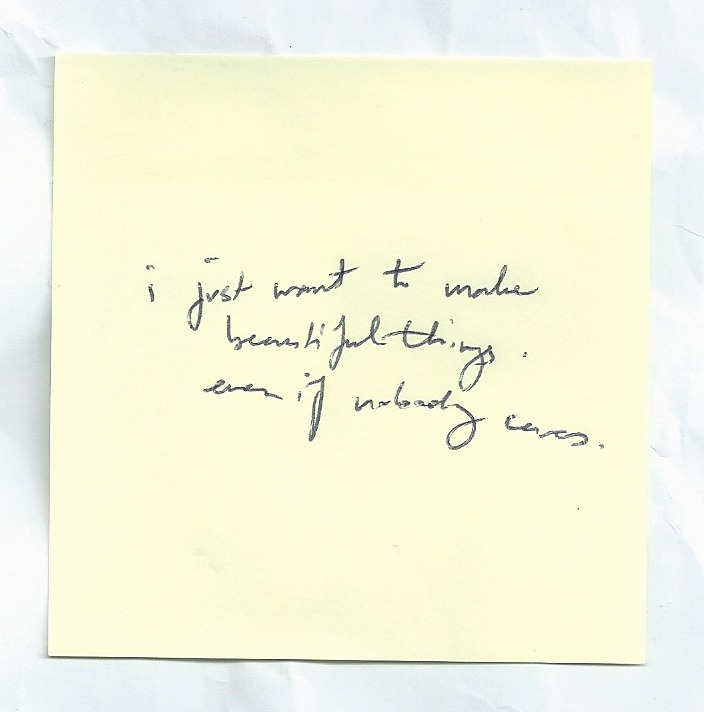 i just want to make
beautiful things.
even if nobody cares.